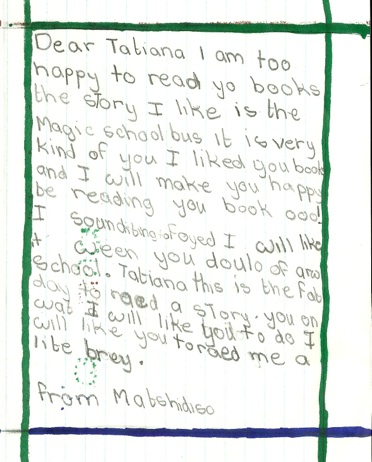 Dear Tatiana I am too
happy to read yo books
the story I like is the
Magic school bus It is very
kind of you I liked you book
and I will make you happy
be reading you book
I I will like
ween you of
school. Tatiana this is the
day to raed a story. you on
wat I will like you to do I
will like you toraed me a
lite brey.
from Matshidiso